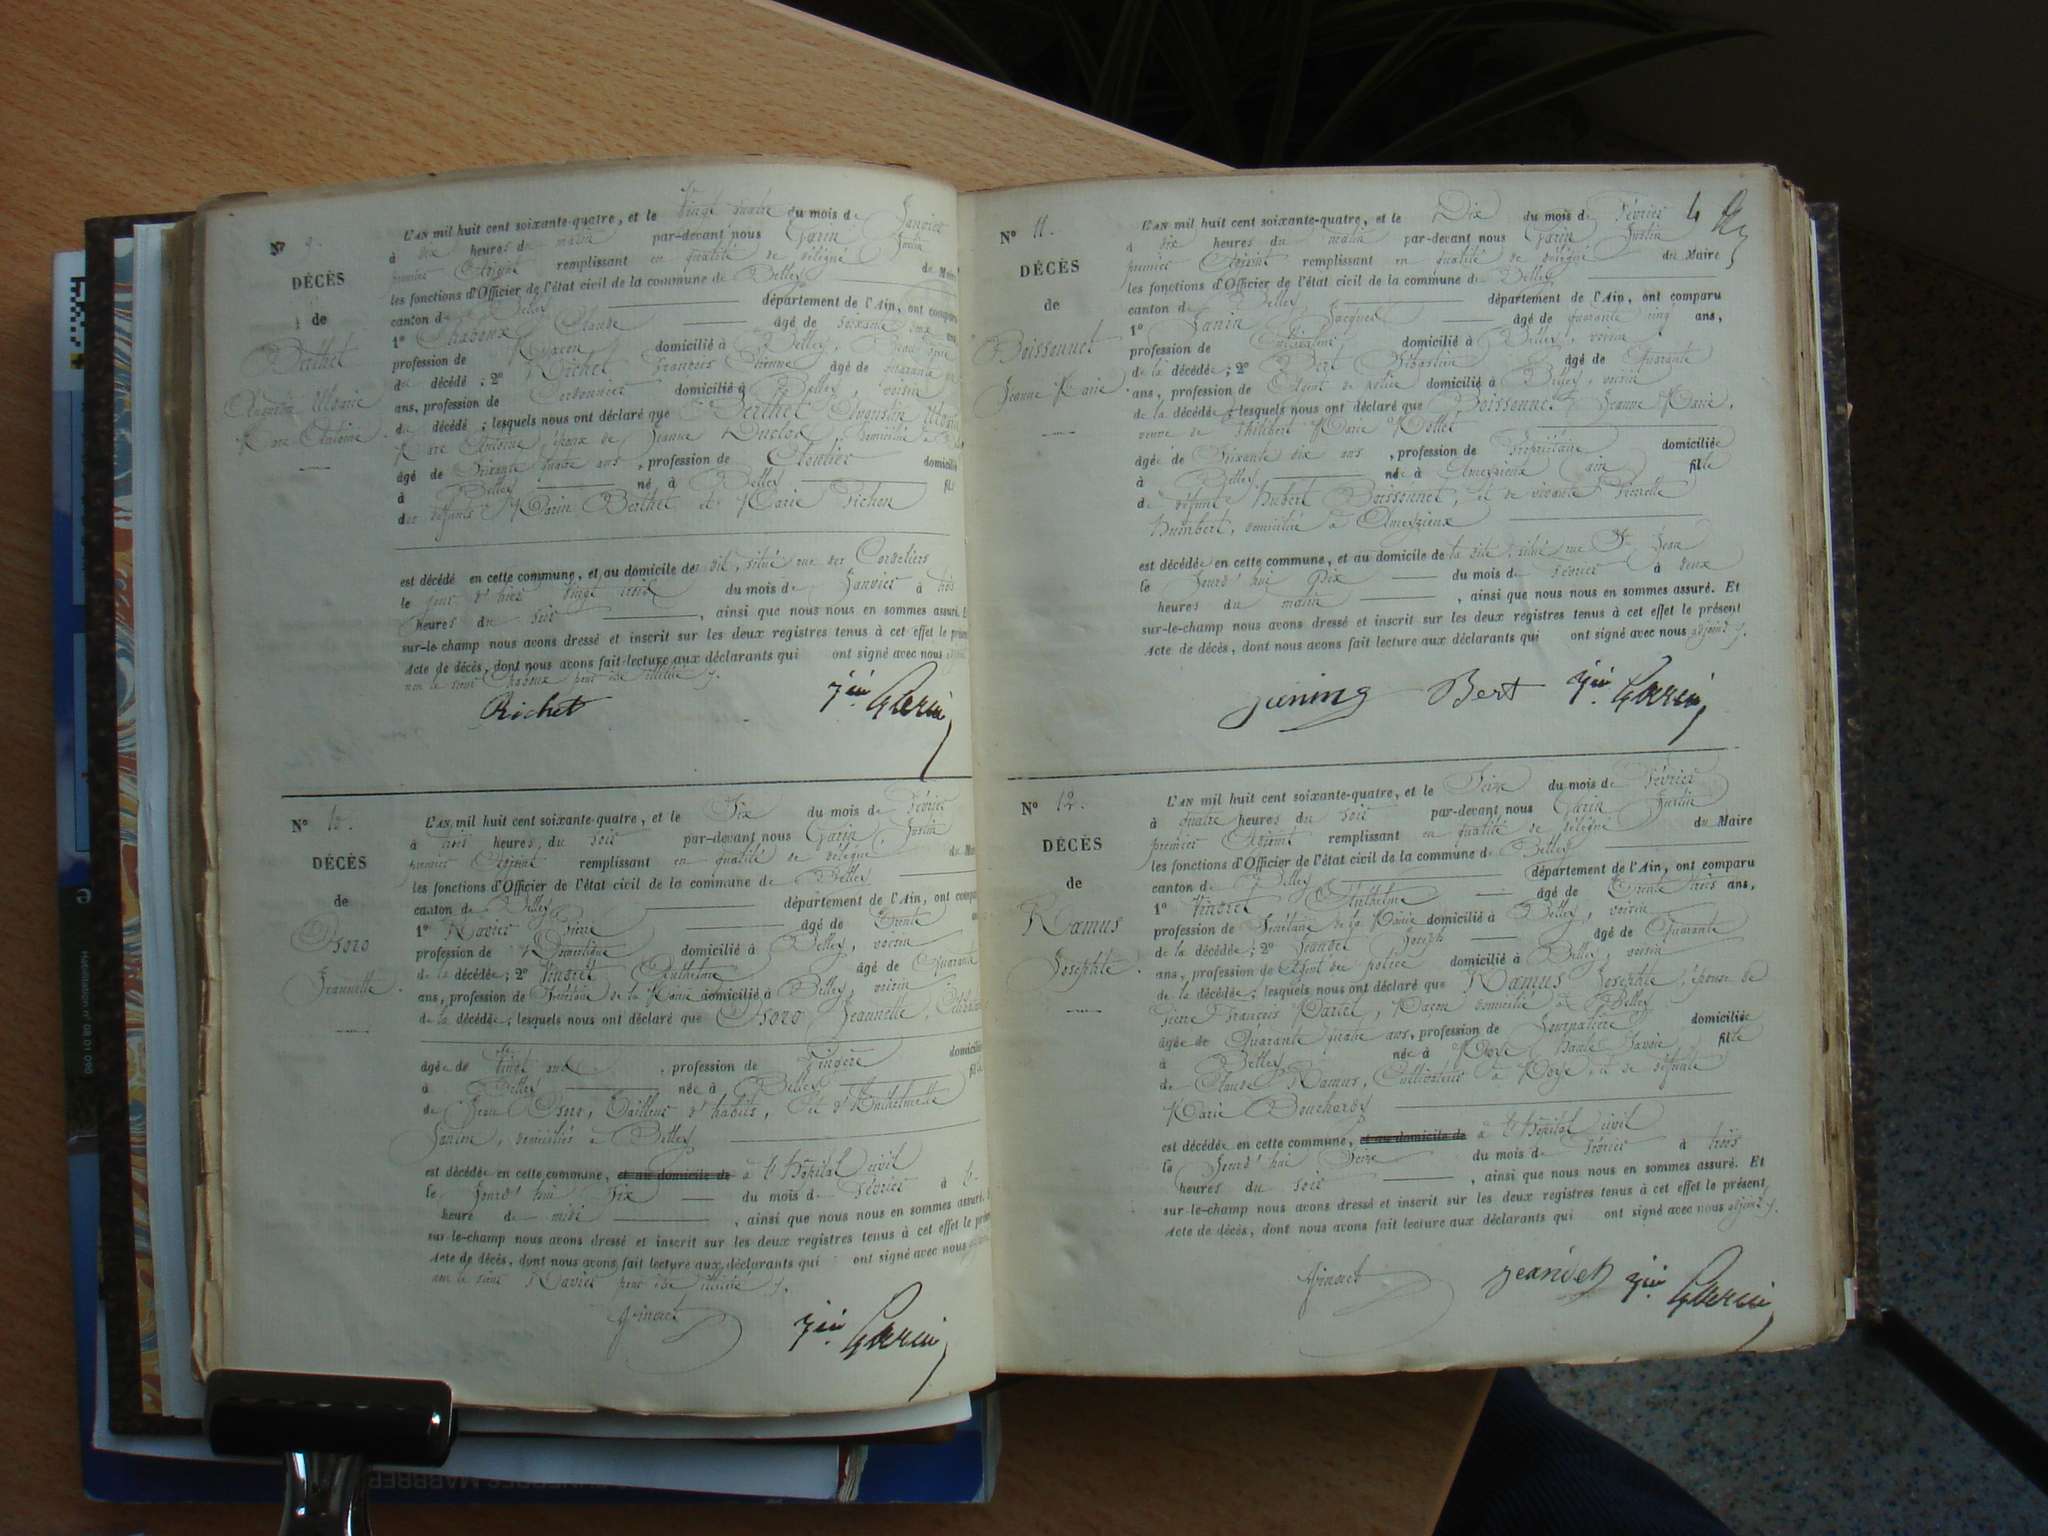 N° 9.
DÉCÈS
de
Berthet
Augustin
Marc Antoine.
L'AN mil huit cent soixante-quatre, et le vingt quatre du mois de Janvier
à dix heures du matin par-devant nous Garin Justin
premier Adjoint remplissant en qualité de délégué du Maire
les fonctions d'Officier de l'état civil de la commune de Belley
canton de Belley département de l'Ain, ont comparu
1° Chaboux Claude âgé de soixante deux
profession de domicilié à Belley,
du décédé ; 2° Richet François Étienne âgé de quarante
ans, profession de Cordonnier domicilié à Belley voisin
du décédé ; lesquels nous ont déclaré que Berthet Augustin
Marc Antoine, époux de Jeanne Duclos, domicilié à
âgé de Soixante quatre ans, profession de Cloutier domicilié
à Belley né à Belley fils
des défunts Marin Berthet et Marie Pichon
est décédé en cette commune, et au domicile de dit, situé rue des Cordeliers
le jour d'hier vingt trois du mois de Janvier à trois
heures du soir, ainsi que nous nous en sommes assuré. E
sur-le-champ nous avons dressé et inscrit sur les deux registres tenus à cet effet le présen
Acte de décès, dont nous avons fait lecture aux déclarants qui ont signé avec nous
non le sieur Chaboux pour être illitéré
Richet Jin Garin
N° 10.
DÉCÈS
de
Jeannette.
L'AN mil huit cent soixante-quatre, et le Six du mois de Février
à trois heures du soir par-devant nous Garin Justin
premier Adjoint remplissant en qualité de délégué du Mai
les fonctions d'Officier de l'état civil de la commune de Belley
canton de Belley département de l'Ain, ont compa
1° Pierre âgé de Trente
profession de Domestique domicilié à Belley, voisin
de la décédée ; 2° Vinoret Anthelme âgé de Quarante
ans, profession de Secrétaire de la Mairie domicilié à Belley, voisin
de la décédée ; lesquels nous ont déclaré que Jeannette, Célibataire
âgée de vingt ans, profession de Lingère domicilié
à Belley née à Belley fille
de Jean, Tailleur d'habits, et d'Anthelmette
domiciliés à Belley
est décédée en cette commune, et au domicile de à l'Hôpital civil
le Jourd'hui Six du mois de Février à
heure de midi, ainsi que nous nous en sommes assuré.
sur-le-champ nous avons dressé et inscrit sur les deux registres tenus à cet effet le prése
Acte de décès, dont nous avons fait lecture aux déclarants qui ont signé avec nous
non le sieur pour être illitéré
Vinoret Jin Garin
4
N° 11.
DÉCÈS
de
Boissonnet
Jeanne Marie.
L'AN mil huit cent soixante-quatre, et le Dix du mois de Février
à dix heures du matin par-devant nous Garin Justin
premier Adjoint remplissant en qualité de délégué du Maire
les fonctions d'Officier de l'état civil de la commune de Belley
canton de Belley département de l'Ain, ont comparu
1° Janin Jacques âgé de quarante cinq ans,
profession de Cultivateur domicilié à Belley, voisin
de la décédée ; 2° Bert Sébastien âgé de Quarante
ans, profession de Agent de police domicilié à Belley, voisin
de la décédée ; lesquels nous ont déclaré que Boissonnet Jeanne Marie,
veuve de Philibert Marie
âgée de Soixante dix ans, profession de Propriétaire domiciliée
à Belley née à Ameyzieux (Ain) fille
de défunt Hubert Boissonnet, et de vivante Pierrette
Humbert, domiciliée à Ameyzieux
est décédée en cette commune, et au domicile de la dite, situé rue St Jean
le Jourd'hui Dix du mois de Février à deux
heures du matin, ainsi que nous nous en sommes assuré. Et
sur-le-champ nous avons dressé et inscrit sur les deux registres tenus à cet effet le présent
Acte de décès, dont nous avons fait lecture aux déclarants qui ont signé avec nous adjoint
Bert Jin Garin
N° 12.
DÉCÈS
de
Ramus
Josephte.
L'AN mil huit cent soixante-quatre, et le Seize du mois de Février
à quatre heures du soir par-devant nous Garin Justin
premier Adjoint remplissant en qualité de délégué du Maire
les fonctions d'Officier de l'état civil de la commune de Belley
canton de Belley département de l'Ain, ont comparu
1° Vinoret Anthelme âgé de Trente trois ans,
profession de Secrétaire de la Mairie domicilié à Belley, voisin
de la décédée ; 2° Jeandet Joseph âgé de Quarante
ans, profession de Agent de police domicilié à Belley, voisin
de la décédée ; lesquels nous ont déclaré que Ramus Josephte, épouse de
Pierre François Martel, Maçon domicilié à Belley
âgée de Quarante quatre ans, profession de Journalière domiciliée
à Belley née à Haute Savoie, fille
de Claude Ramus, Cultivateur à et de défunte
Marie Bouchardy
est décédée en cette commune, et au domicile de à l'Hôpital civil
le Jourd'hui Seize du mois de Février à trois
heures du soir, ainsi que nous nous en sommes assuré. Et
sur-le-champ nous avons dressé et inscrit sur les deux registres tenus à cet effet le présent
Acte de décès, dont nous avons fait lecture aux déclarants qui ont signé avec nous adjoint
Vinoret Jeandet Jin Garin
Habilitation n° 08.01.090